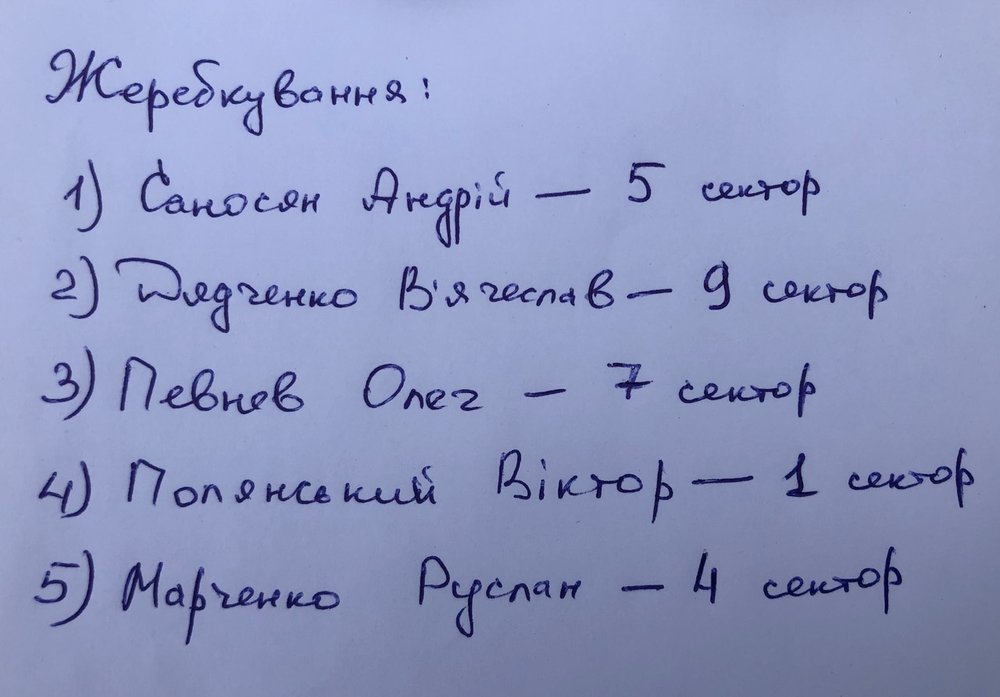 Жеребкування:
1) Саносян Андрій — 5 сектор
2) Дядченко В'ячеслав — 9 сектор
3) Певнев Олег — 7 сектор
4) Полянський Віктор — 1 сектор
5) Марченко Руслан — 4 сектор